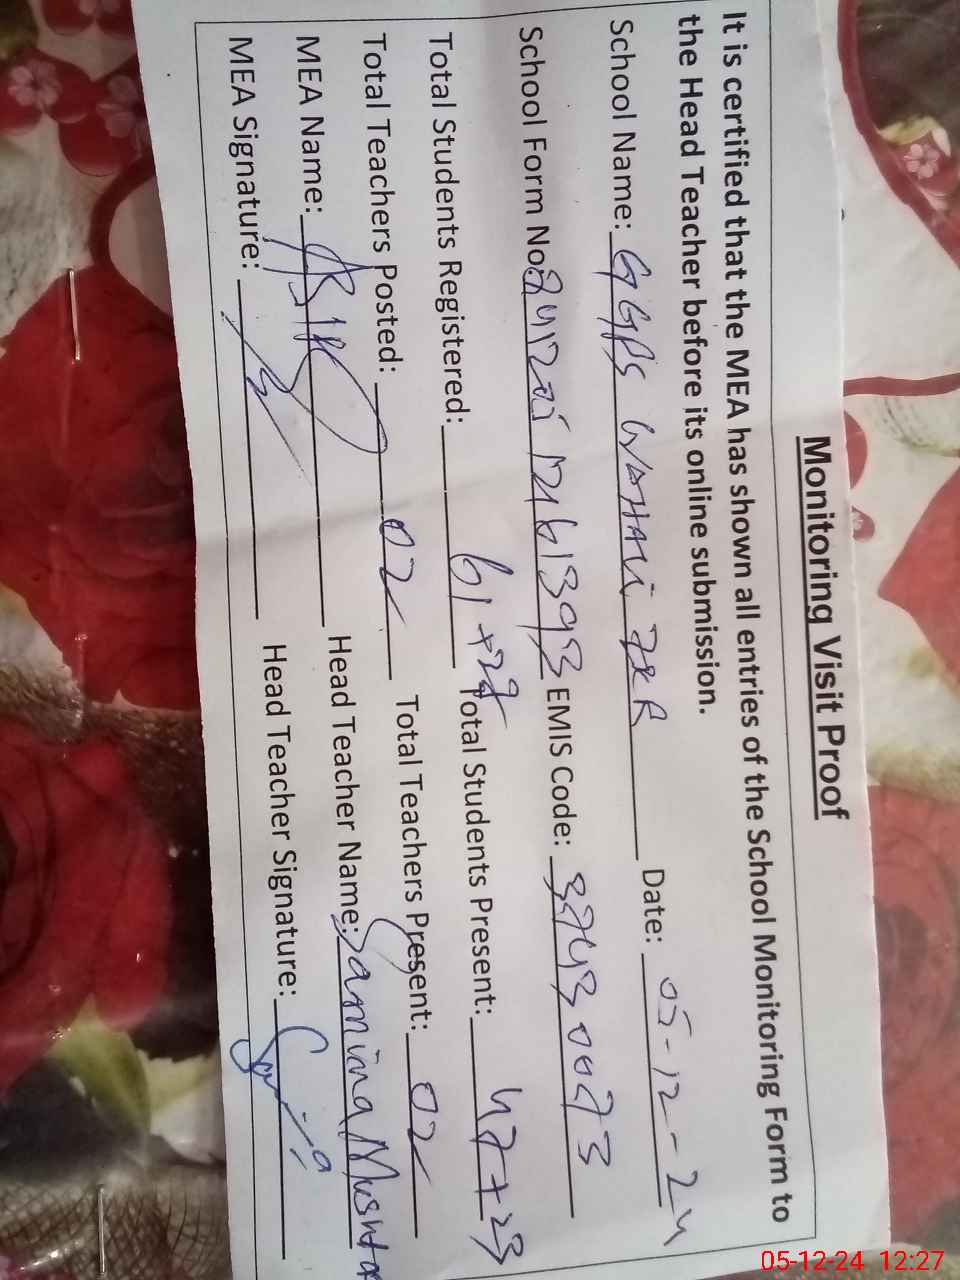 Monitoring Visit Proof
It is certified that the MEA has shown all entries of the School Monitoring Form to
the Head Teacher before its online submission.
School Name: GGPS WAHALI ZER Date: 05-12-24
School Form No: EMIS Code:
Total Students Registered: 61+27 Total Students Present: 47+23
Total Teachers Posted: 02 Total Teachers Present: 02
MEA Name: Head Teacher Name: Samina
MEA Signature: Head Teacher Signature:
05-12-24 12:27